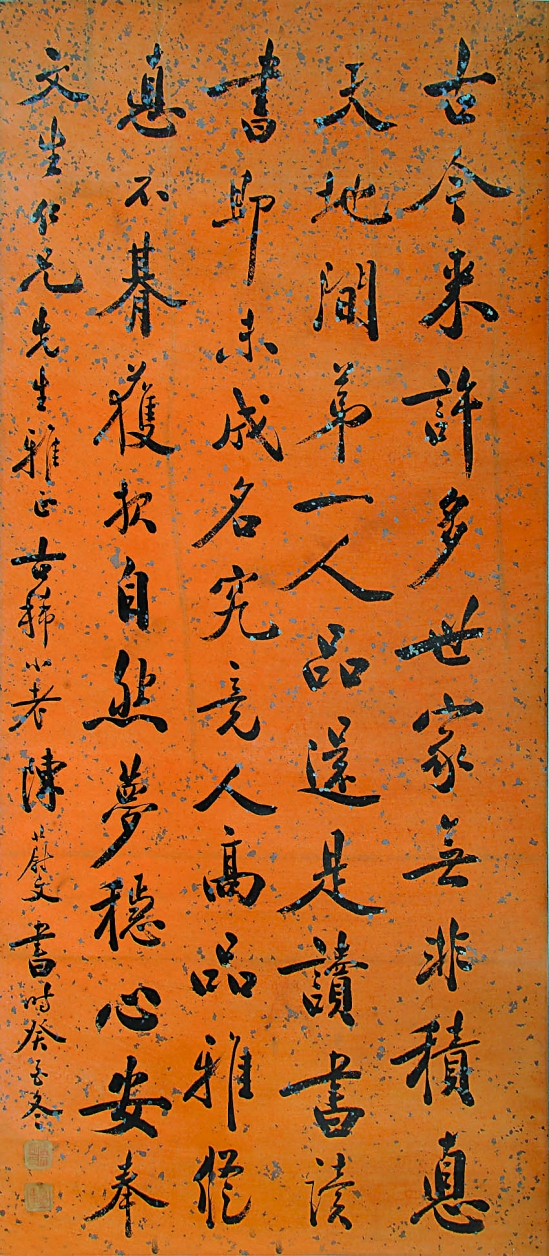 古今来許多世家無非積悳
天地間苐一人品還是讀書讀
書即未成名究竟人高品雅修
悳不朞獲报自然夢穩心安奉
文生仁兄先生雅正古稀小老陳蔚文書時癸亥冬